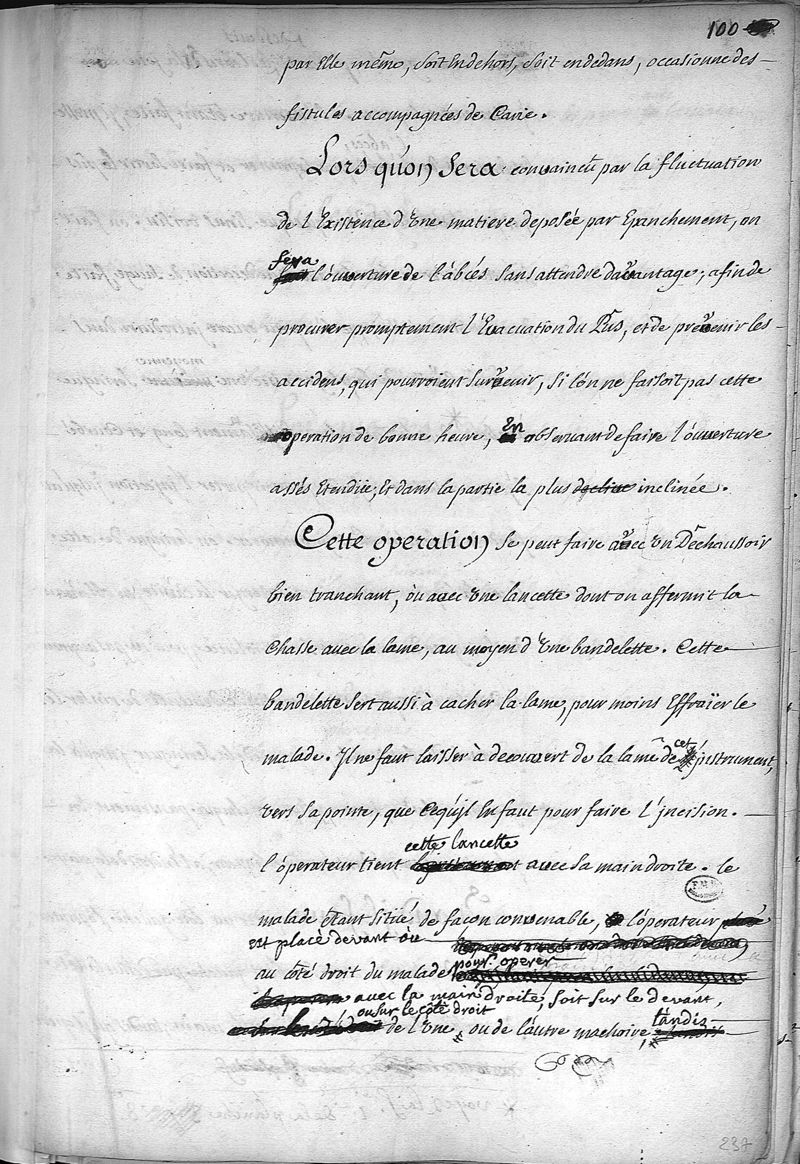 100
par Elle même, soit En dehors, soit en dedans, occasionne des
fistules accompagnées de Carie.
Lors qu'on sera convaincû par la fluctuation
de l'Existence d'Une matiere deposée par Epanchement, on
fera
l'ouverture de l'abcés sans attendre davantage; afin de
procurer promptement l'Evacuation du Pus, et de prevenir les
accidens, qui pourroient survenir, si l'on ne faisoit pas cette
operation de bonne heure, En observant de faire l'ouverture
assés Etendüe, Et dans la partie la plus declive inclinée.
Cette operation se peut faire avec Un Dechaussoir
bien tranchant, ou avec Une lancette dont on affermit la
Chasse avec la lame, au moyen d'Une bandelette. Cette
bandelette sert aussi à cacher la lame, pour moins Effraïer le
malade. Il ne faut laisser à decouvert de la lame de cet instrument,
vers sa pointe, que ce qu'il En faut pour faire l'incision.
cette lancette
l'óperateur tient avec sa main droite. le
malade étant situé de façon convenable, l'óperateur
est placé devant ou
au côté droit du malade pour operer
avec la main droite, soit sur le devant,
ou sur le côté droit
de l'Une, ou de l'autre machoire, tandis
237